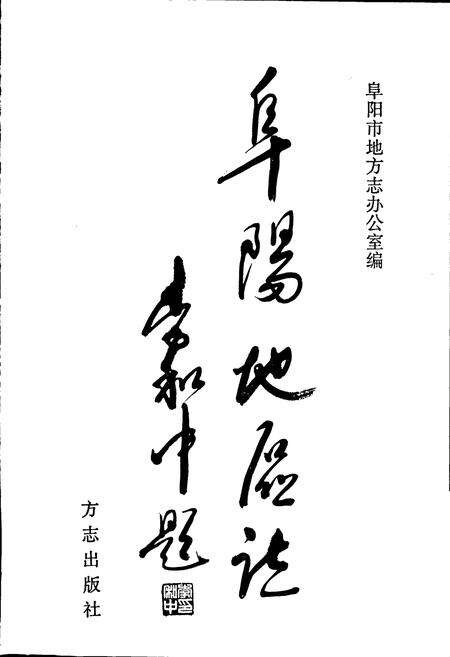 阜阳市地方志办公室编
阜陽地區誌
秦和中題
方志出版社